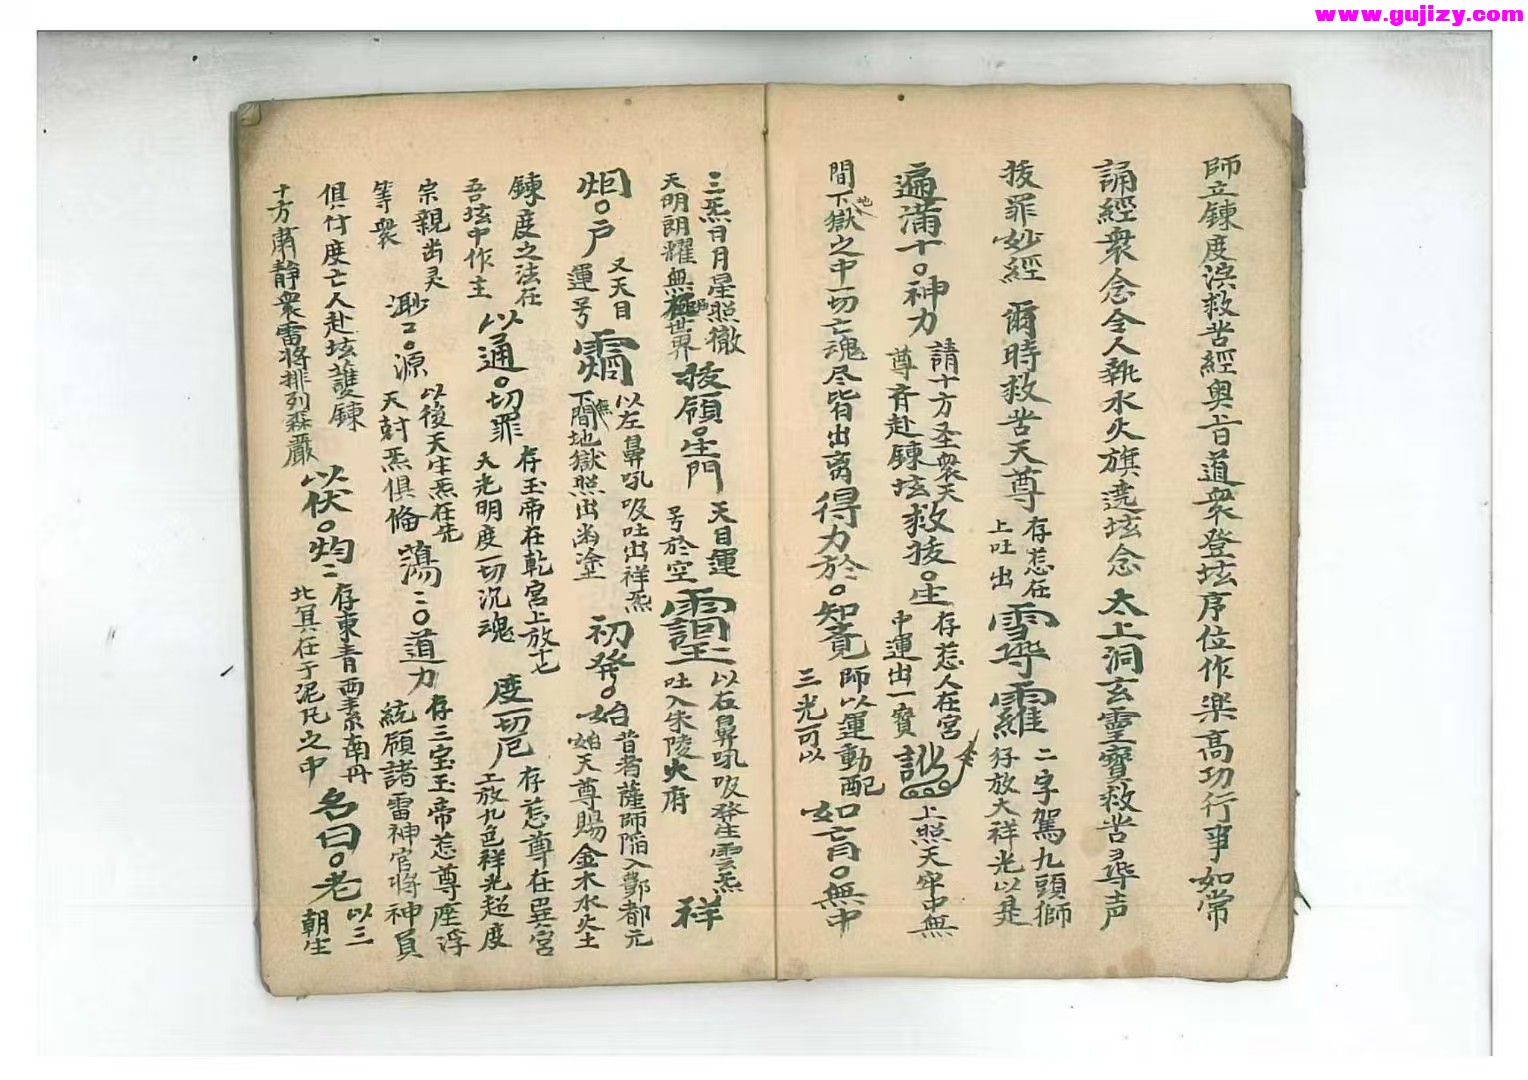 www.gujizy.com
師立鍊度浜救苦經奥旨道衆登坛序位作楽高功行事如常
誦經衆念令人執水火旗遶坛念太上洞玄靈寳救苦尋声
抜罪妙經 爾時救苦天尊
存惹在
上吐出
二字駕九頭獅
狩放大祥光以是
遍滿十○神力
請十方圣衆天
尊斉赴鍊坛
救抜○生
存惹人在宮
中運出一寳
上照天牢中無
間下獄之中一切亡魂尽皆出离
地
得力於○知覓
師以運動配
三光可以
如盲○無中
三炁日月星照徹
天明朗耀無極世界
抜領○生門
天目運
号於空
以右鼻吼吸發生雲炁
吐入朱陵火府
祥
烟○户
又天目
運号
以左鼻吼吸吐出祥炁
下間地獄照出尚塗
無
初発○始
昔者薩師陷入酆都元
始天尊賜金木水火土
鍊度之法在
吾坛中作主
以通○切罪
存玉帝在乹宮上放十七
大光明度一切沉魂
度一切厄
存惹尊在巽宮
工放九色祥光超度
宗親出灵
等衆
渺〻○源
以後天生炁任先
天尅炁俱備
蕩〻○道力
存三宝玉帝惹尊座浮
統領諸雷神官将神員
俱付度亡人赴坛護鍊
十方肅静衆雷将排列森嚴
以伏○灼〻
存東青西素南丹
北冥在于泥凡之中
名曰○老
以三
朝生